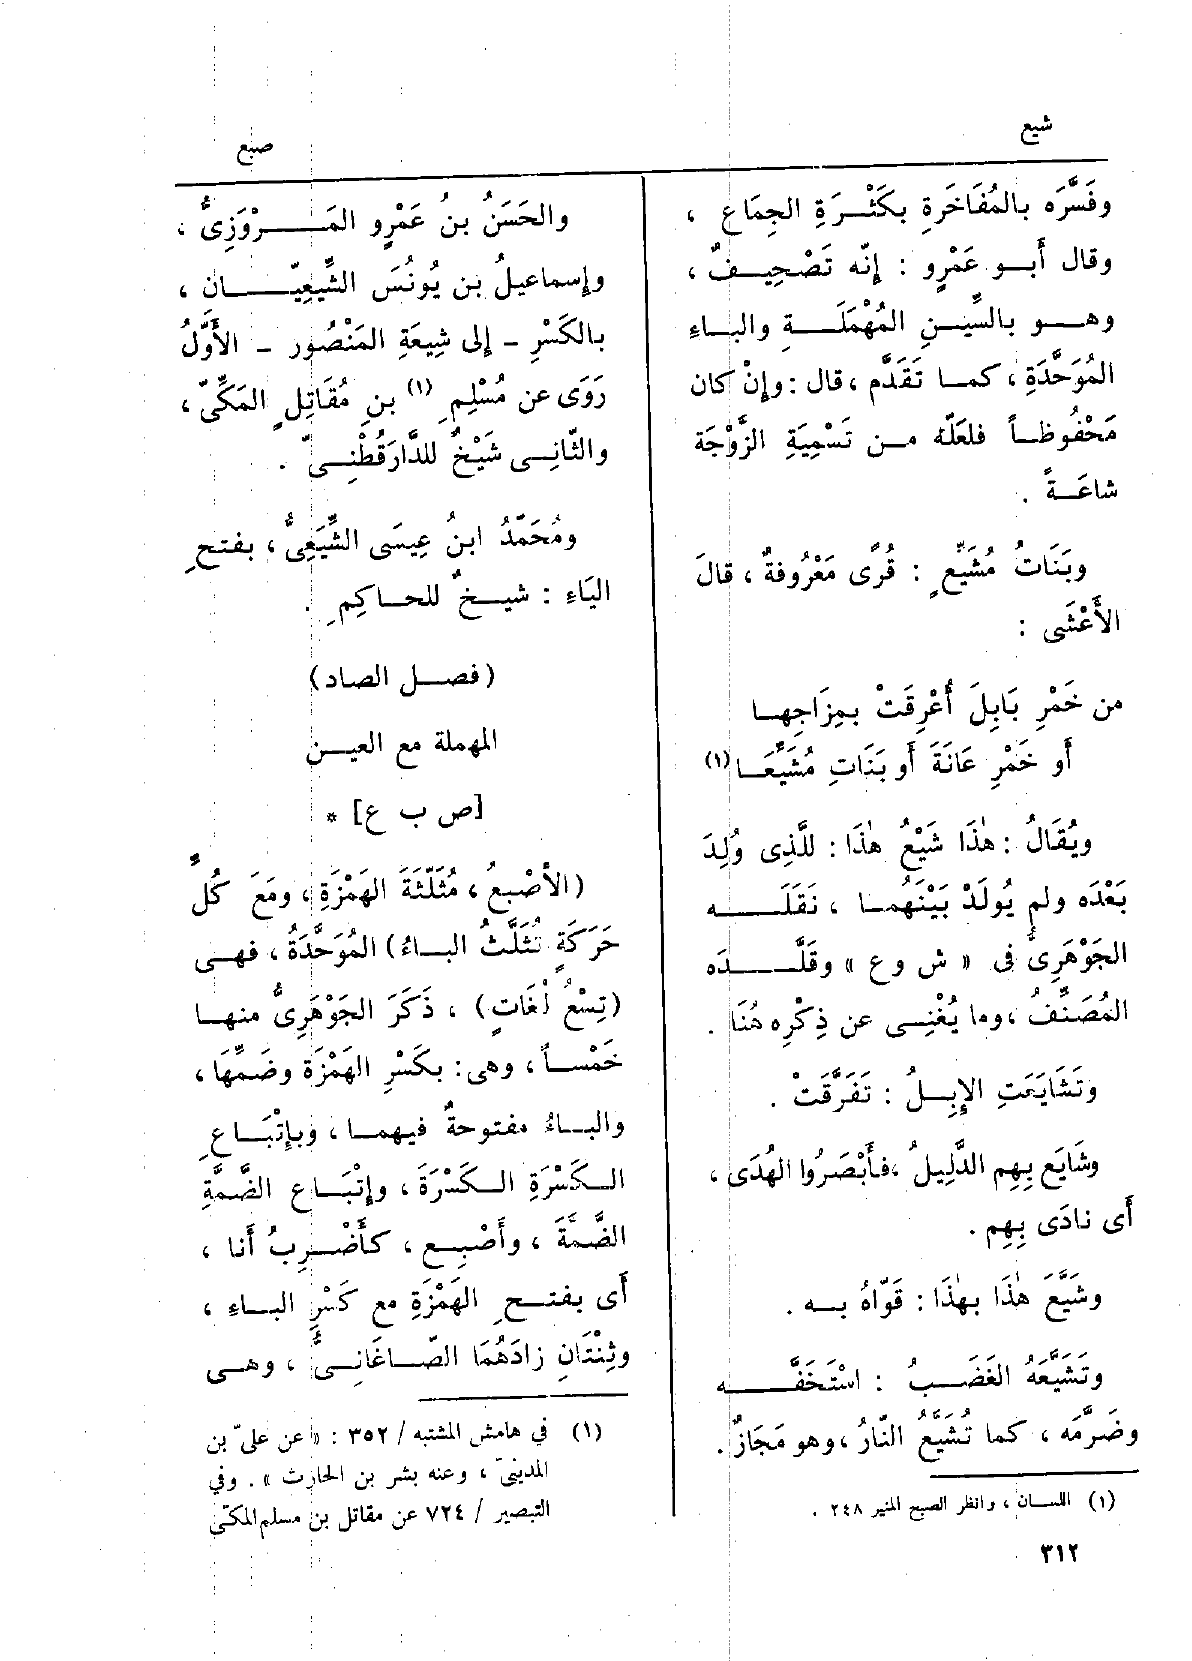 شيع
صبع
وفَسَّرَه بالمُفَاخَرةِ بكَثْـرَةِ الجِمَاعِ ،
وقال أَبـو عَمْرٍو : إنّه تَصْحِيـفٌ ،
وهـو بالسِّينِ المُهْمَلَـةِ والبـاءِ
المُوَحَّدَةِ ، كمـا تَقَدَّم ، قال : وإنْ كان
مَحْفُوظـاً فلعَلّه مـن تَسْمِيَةِ الزَّوْجَة
شاعَـةً .
وبَنَاتُ مُشَيِّعٍ : قُرًى مَعْرُوفةٌ ، قالَ
الأَعْشَى :
من خَمْرِ بَابِلَ أُعْرِقَتْ بـمِزَاجِهـا
أَو خَمْرِ عَانَةَ أَو بَنَاتِ مُشَيَّعَـا (١)
ويُقَالُ : هٰذَا شَيْعُ هٰذَا : للَّذِى وُلِدَ
بَعْدَه ولم يُولَدْ بَيْنَهُمـا ، نَقَلَـه
الجَوْهَرِىُّ فى « ش وع » وقَلَّـدَه
المُصَنِّفُ ، وما يُغْنِـى عن ذِكْرِه هُنَا .
وتَشَايَعَتِ الإِبِـلُ : تَفَرَّقَتْ .
وشَايَع بِهِم الدَّلِيلُ ، فأَبْصَرُوا الهُدَى ،
أَى نادَى بِهِم .
وشَيَّعَ هٰذَا بهٰذَا : قَوّاهُ بـه .
وتَشَيَّعَهُ الغَضَبُ : اسْتَخَفَّـه
وضَرَّمَه ، كما تُشَيَّعُ النّارُ ، وهو مَجَازٌ .
(١) اللسـان ، وانظر الصبح المنير ٢٤٨ .
والحَسَنُ بنُ عَمْرٍو المَـرْوَزِىُّ ،
وإسماعيلُ بن يُونُسَ الشِّيعِيّـانِ ،
بالكَسْرِ - إلى شِيعَةِ المَنْصُور - الأَوَّلُ
رَوَى عن مُسْلِمِ (١) بنِ مُقَاتِلٍ المَكِّىّ ،
والثّانِـى شَيْخٌ للدَّارَقُطْنِـىّ .
ومُحَمَّدُ ابنُ عِيسَى الشِّيَعِىُّ ، بفتحِ
اليَاءِ : شيـخٌ للحـاكِمِ .
(فصـل الصاد)
المهملة مع العيـن
[ص ب ع] *
(الأصْبعُ ، مُثَلَّثَةَ الهَمْزَةِ ، ومَعَ كُلِّ
حَرَكَةٍ تُثَلَّثُ البـاءُ) المُوَحَّدَةُ ، فهـى
(تِسْعُ لُغَاتٍ) ، ذَكَرَ الجَوْهَرِىُّ منهـا
خَمْسـاً ، وهى : بكَسْرِ الهَمْزَةِ وضَمِّهَا ،
والبـاءُ مفتوحةٌ فيهمـا ، وبإِتْبَـاعِ
الـكَسْرَةِ الـكَسْرَةَ ، وإتْبَـاع الضَّمَّةِ
الضَّمَّةَ ، وأَصْبِـع ، كأَضْـرِبُ أَنا ،
أَى بفتـحِ الهَمْزَةِ مع كَسْرِ البـاءِ ،
وثِنْتَانِ زادَهُمَا الصّاغَانِـىُّ ، وهـى
(١) في هامش المشتبه / ٣٥٢ : « عن علىّ بن
المدينىّ ، وعنه بشر بن الحارث » . وفي
التبصير / ٧٢٤ عن مقاتل بن مسلم المكىّ
٣١٢